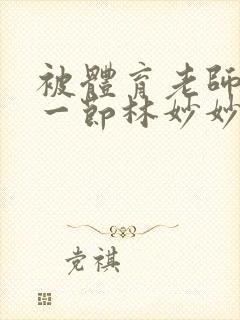 被體育老師
一節林妙妙
党祺